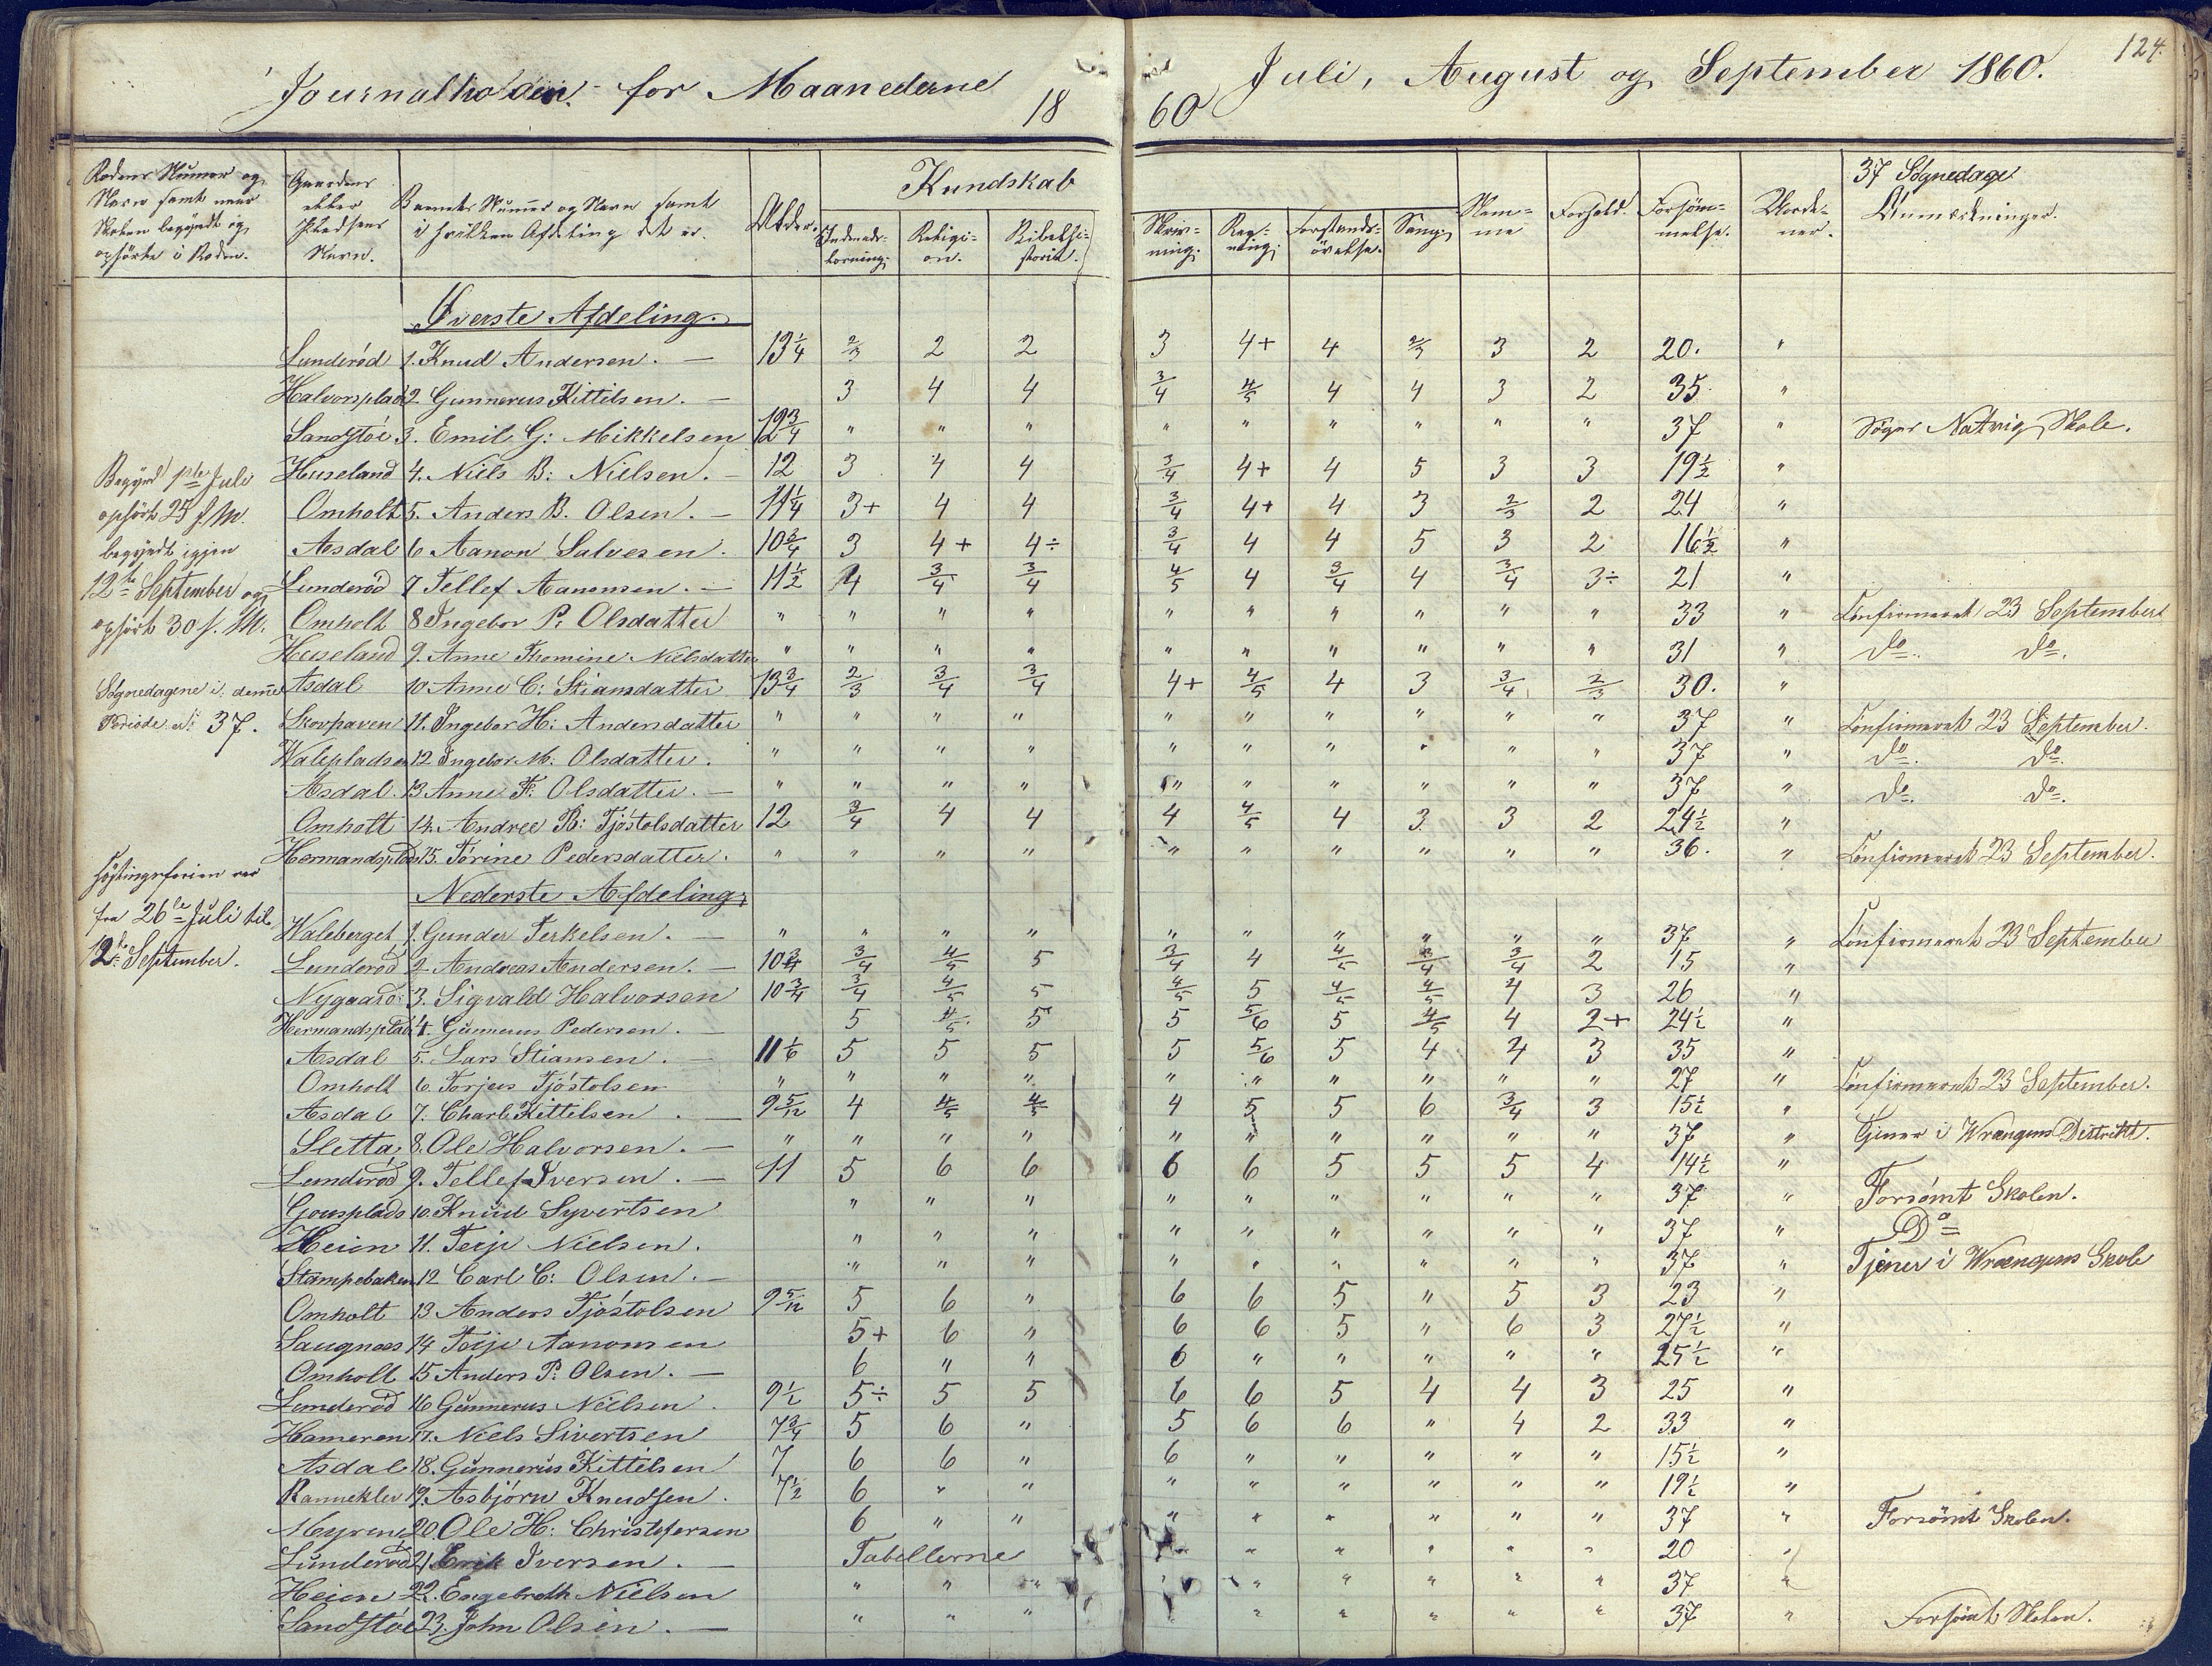 124.
Journalholden for Maanederne 1860 Juli, August og September 1860.
Rodens Numer og Navn samt naar Skolen begyndt og ophörte i Roden.
Gaardens eller Pladsens Navn.
Barnets Numer og Navn samt i hvilken Afdeling det er.
Alder.
Kundskab
Indenadslæsning. Religion. Bibelhistorie. Skrivning. Regning. Forstandsövelse. Sang.
Nemme Forhold. Forsömmelse. Vorderner.
37 Sögnedage
Anmærkninger.
Begynd 1ste Juli
ophört 25 f. M.
begyndt igjen
12te September og
ophört 30 f. M.
Sögnedagene i denne
Periode er 37.
Höstingsferien var
fra 26de Juli til
12te September.
Øverste Afdeling.
Lunderöd 1. Knud Andersen. — 13 1/4 2/3 2 2 3 4+ 4 2/3 3 2 20. "
Halvorsplads 2. Gunnerus Kittilsen. — 3 4 4 3/4 4/5 4 4 3 2 35. "
Sandstöe 3. Emil G: Mikkelsen 12 3/4 " " " " " " " " " 37 " Söger Natvig Skole.
Huseland 4. Niels B: Nielsen. — 12 3 4 4 3/4 4+ 4 5 3 3 19 1/2 "
Omholt 5. Anders B. Olsen. — 11 1/4 3+ 4 4 3/4 4+ 4 3 2/3 2 24 "
Asdal 6 Aanon Salvesen. 10 3/4 3 4+ 4÷ 3/4 4 4 5 3 2 16 1/2 "
Lunderöd 7 Tellef Aanonsen. — 11 1/2 4 3/4 3/4 4/5 4 3/4 4 3/4 3÷ 21 "
Omholt 8 Ingebor P. Olsdatter " " " " " " " " " " 33 " Confirmeret 23 September
Huseland 9. Anne Thomine Nielsdatter " " " " " " " " " " 31 " do. do.
Asdal 10 Anne C: Stiansdatter 13 3/4 2/3 3/4 3/4 4+ 4/5 4 3 3/4 2/3 30. "
Skovhaven 11. Ingebor H: Andersdatter " " " " " " " " " " 37 " Confirmeret 23 September.
Walepladsen 12 Ingebor M: Olsdatter. " " " " " " " " " " 37 " do. do.
Asdal. 13 Anne F. Olsdatter. — " " " " " " " " " " 37 " do. do.
Omholt 14. Andree B: Tjöstolsdatter 12 3/4 4 4 4 4/5 4 3 3 2 24 1/2 "
Hermandsplads 15. Törine Pedersdatter. " " " " " " " " " " 36. " Confirmeret 23 September.
Nederste Afdeling.
Waleberget 1. Gunder Terkelsen. — " " " " " " " " " " 37 " Confirmeret 23 September
Lunderöd 2 Andreas Andersen. — 10 3/4 3/4 4/5 5 3/4 4 4/5 3/4 3/4 2 15 "
Nygaard: 3. Sigvald Halvorsen 10 3/4 3/4 4/5 5 4/5 5 4/5 4/5 4 3 26 "
Hermandsplads 4. Gunnerus Pedersen. — 5 4/5 5 5 5/6 5 4/5 4 2+ 24 1/2 "
Asdal 5. Lars Stiansen. — 11 1/6 5 5 5 5 5/6 5 4 4 3 35 "
Omholt 6. Torjus Tjöstolsen " " " " " " " " " " 27 " Confirmeret 23 September.
Asdal 7. Charl Kittilsen. — 9 5/12 4 4/5 4/5 4 5 5 6 3/4 3 15 1/2 "
Sletta 8. Ole Halvorsen. — " " " " " " " " " " 37 " Tjener i Wrængens Distrikt.
Lunderöd 9. Tellef Iversen. — 11 5 6 6 6 6 5 5 5 4 14 1/2 "
Gousplads 10. Knud Syvertsen " " " " " " " " " 37 " Forsömt Skolen.
Heien 11. Terje Nielsen. " " " " " " " " " 37 " Do
Stampebaken 12 Carl C: Olsen. — " " " " " " " " " 37 " Tjener i Wrængens Skole
Omholt 13 Anders Tjöstolsen 9 5/12 5 6 " 6 6 5 " 5 3 23 "
Saugnæs 14 Terje Aanonsen 5+ 6 " 6 6 5 " 6 3 27 1/2 "
Omholt 15 Anders P. Olsen. — 6 " " 6 " " " " " 25 1/2 "
Lunderöd 16 Gunnerus Nielsen. 9 1/2 5÷ 5 5 6 6 5 4 4 3 25 "
Hameren 17. Niels Sivertsen 7 3/4 5 6 " 5 6 6 " 4 2 33 "
Asdal 18. Gunnerus Kittilsen 7 6 6 " 6 " " " " " 15 1/2 "
Rannekler 19. Asbjörn Knudsen. 7 1/2 6 " " " " " " " " 19 1/2 "
Myrene 20. Ole H: Christofersen 6 " " " " " " " " 37 " Forsömt Skolen.
Lunderöd 21 Erik Iversen. — Tabellerne " " " " " " 20 "
Heien 22. Engebreth Nielsen " " " " " " " " " 37 "
Sandstöe 23. John Olsen. — " " " " " " " " " 37 " Forsömt Skolen.